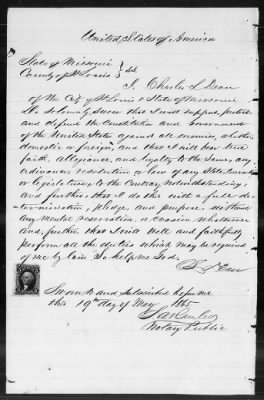 United States of America
State of Missouri
County of St Louis } ss
I, Charles L Dean
of the City of St Louis & State of Missouri
do Solemnly Swear that I will support, protect
and defend the Constitution and Government
of the United States against all enemies, whether
domestic or foreign, and that I will bear true
faith, allegiance, and loyalty to the same, any
ordinance, resolution or law of any State Convention
or Legislature, to the Contrary notwithstanding,
and further, that I do this with a full de-
termination, pledge, and purpose, without
any mental reservation, or evasion whatsoever
and, further that I will well and faithfully
perform all the duties which may be required
of me by law. So help me God.
Dean
Sworn to and Subscribed before me
this 19th day of May 1865
Notary Public